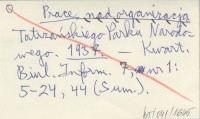 Prace nad organizacją
Tatrzańskiego Parku Narodo-
wego. 1954. – Kwart.
Biul. Inform. 7, nr 1:
5-24, 44 (Sum.).